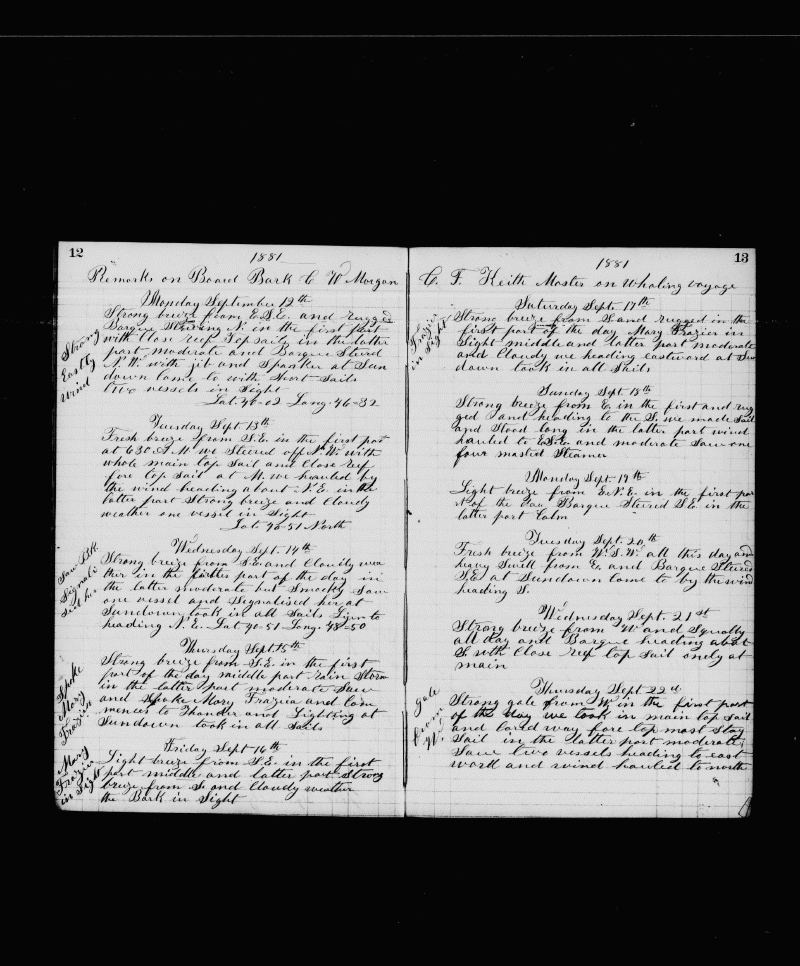 12
1881
Remarks on Board Bark C W Morgan
Monday September 12th
Strong breize from E.S.E. and rugged
Barque Stering N. in the first part
with Close reef Top sails in the latter
part moderate and Barque Stered
N.W. with jib and Spanker at Sun
down Come to with Short Sails
two vessels in Sight
Lat 40-02 Long. 46-32
Strong
Eastly
wind
Tuesday Sept 13th
Fresh breize from S.E. in the first part
at 630 A.M. we Steered off N.W. with
whole main top Sail and Close reef
fore top Sail at M. we hauled by
the wind heading about N.E. in the
latter part Strong breize and Cloudy
weather one vessel in Sight
Lat 40-51 North
Wednesday Sept. 14th
Strong breize from S.E. and Cloudy wea
ther in the first part of the day in
the latter moderate but Smocky Saw
one vessel and Signalised her at
Sundown took in all Sails Lyin to
heading N.E. Lat 40-51 Long. 48-50
Saw Bk
Signals
Set her
Thursday Sept 15th
Strong breize from S.E. in the first
part of the day middle part rain Storm
in the latter part moderate Saw
and Spoke Mary Frazier and Com
mences to Thunder and Lighting at
Sundown took in all Sails
Spoke
Mary
Frazier
Friday Sept 16th
Light breize from S.E. in the first
part middle and latter part Strong
breize from S. and Cloudy weather
the Bark in Sight
Mary
Frazier
in Sight
13
1881
C. F. Keith Master on Whaling voyage
Saturday Sept. 17th
Strong breize from S. and rugged in the
first part of the day Mary Frazier in
Sight middle and latter part moderate
and Cloudy we heading eastward at Sun
down took in all Sails
Frazier
in Sight
Sunday Sept 18th
Strong breize from E. in the first and rug
ged and heading to the S. we made Sail
and Stood long in the latter part wind
hauled to E.S.E. and moderate Saw one
four masted Steamer
Monday Sept. 19th
Light breize from E.N.E. in the first par
t of the Day Barque Stered S.E. in the
latter part Calm
Tuesday Sept. 20th
Fresh breize from W.S.W. all this day and
heavy Swell from E. and Barque Steered
S.E. at Sundown Come to by the wind
heading S.
Wednesday Sept. 21st
Strong breize from W. and Squally
all day and Barque heading about
S. with Close reef top Sail onely at
main
Thursday Sept 22d
Strong gale from W. in the first part
of the day we took in main top Sail
and lored way fore top mast Stay
Sail in the latter part moderate
Saw two vessels heading to east
ward and wind hauled to north
Gale
from
W.